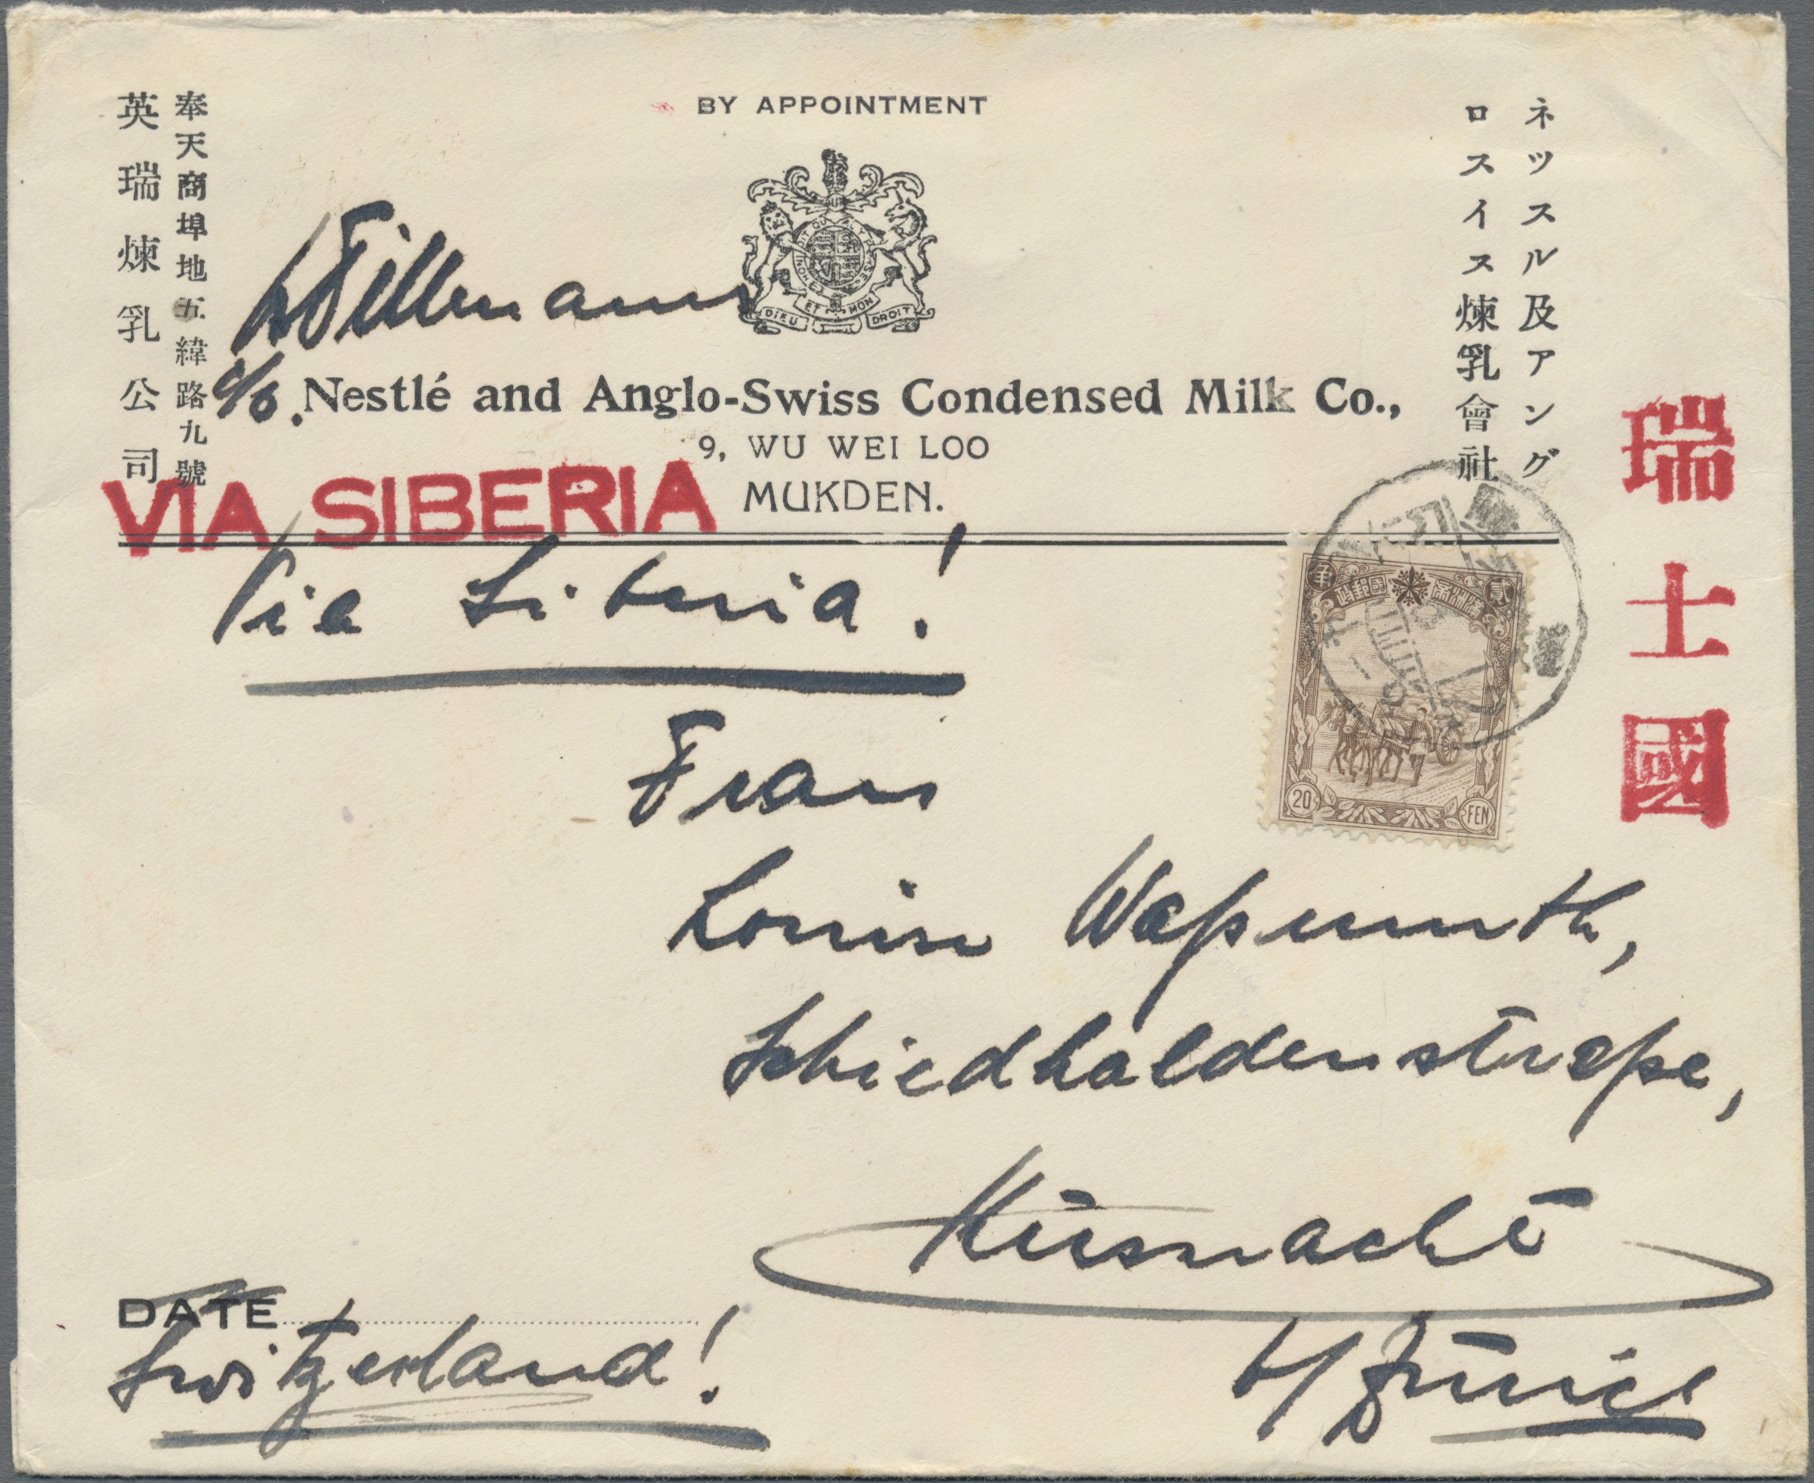 BY APPOINTMENT
DIEU ET MON DROIT
奉天商埠地五緯路九號
英瑞煉乳公司
ネツスル及アング
ロスイス煉乳會社
Nestlé and Anglo-Swiss Condensed Milk Co.,
c/o.
9, WU WEI LOO
MUKDEN.
VIA SIBERIA
瑞士國
Via Siberia!
20 FEN
Frau
Louise
Schiedhaldenstraße,
Küsnacht
b/Zürich
DATE
Switzerland!